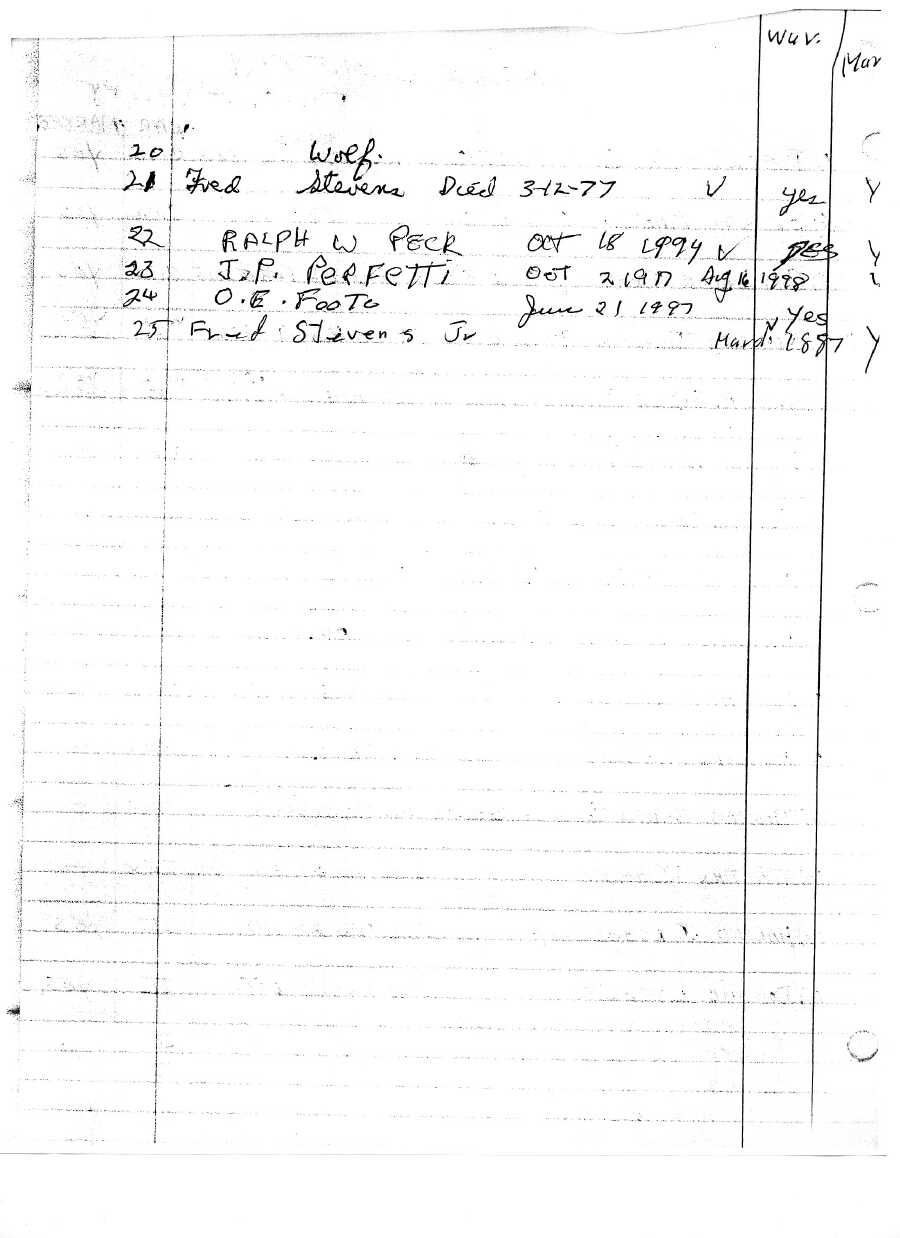 Wav. Mar
20 Wolf.
21 Fred Stevens Died 3-12-77 V yes Y
22 RALPH W PECK Oct 18 1994 V yes Y
23 J.P. PERFETTI Oct 2 197 Aug 16 1998
24 O.E. Foote June 21 1997 V yes
25 Fred Stevens Jr Mard. 1887 Y